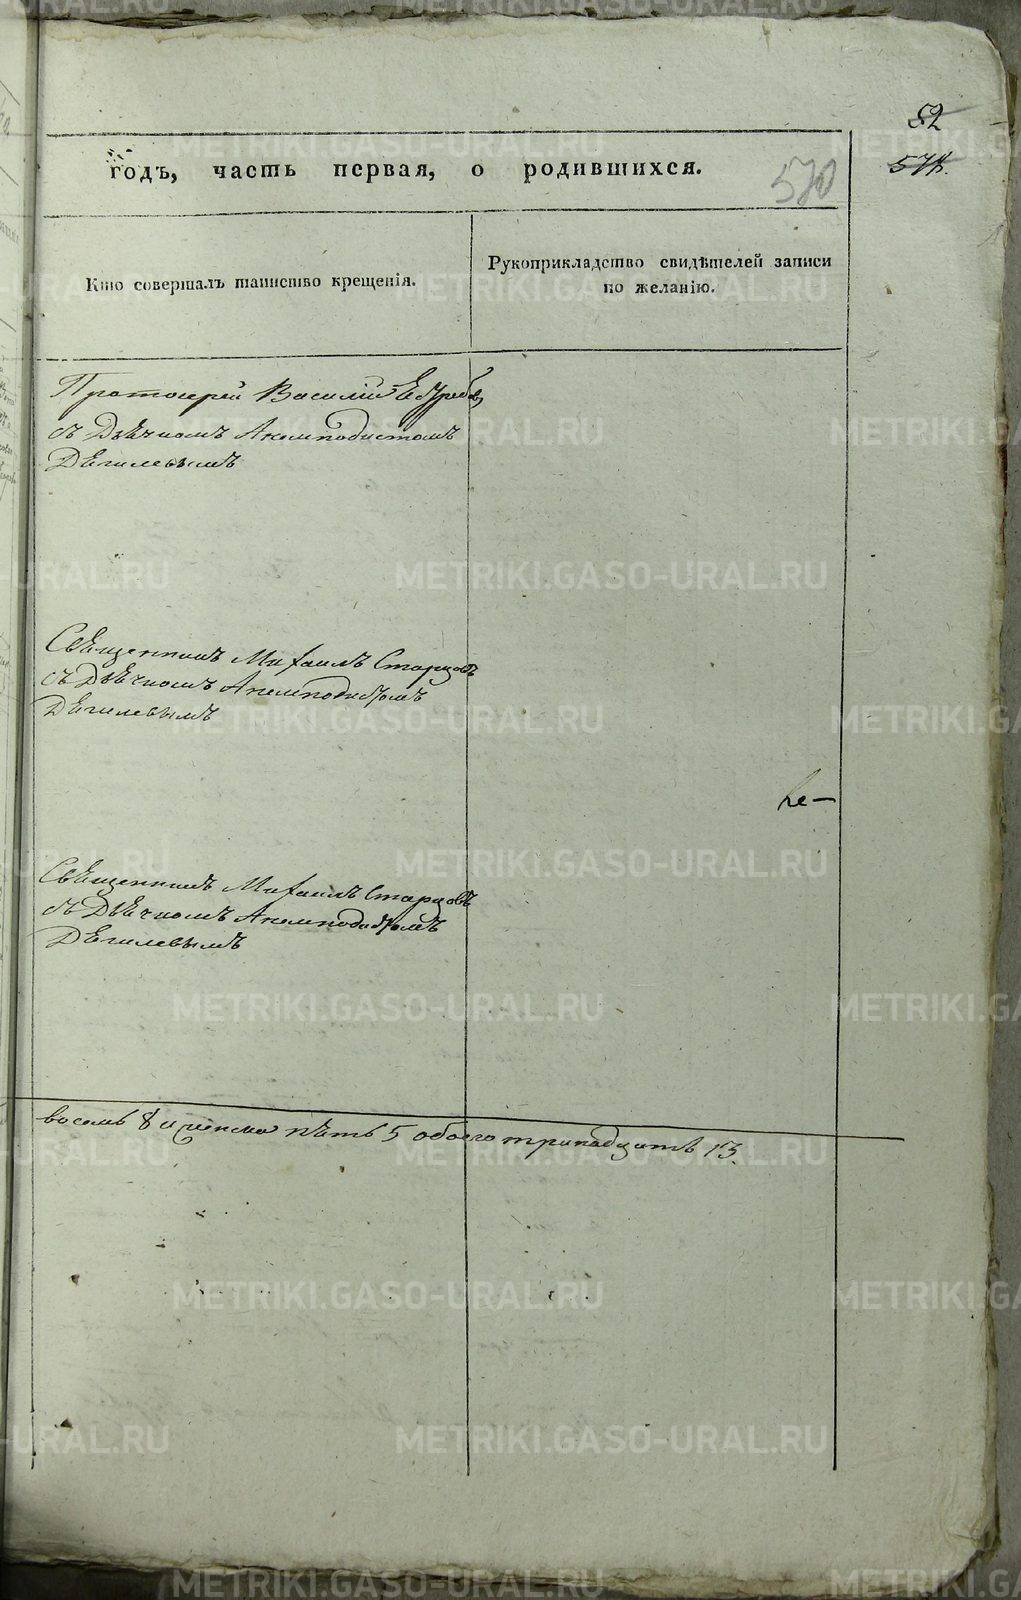 52
574.
годъ, часть первая, о родившихся.
570
Кто совершалъ таинство крещенія.
Рукоприкладство свидѣтелей записи
по желанію.
Протоіерей Василій
съ Дьячкомъ Анемподистомъ
Дягилевымъ
Священникъ Михаилъ Старцовъ
съ Дьячкомъ Анемподистомъ
Дягилевымъ
Священникъ Михаилъ Старцовъ
съ Дьячкомъ Анемподистомъ
Дягилевымъ
восемь 8 и женска пять 5 обоего тринадцать 13.
METRIKI.GASO-URAL.RU